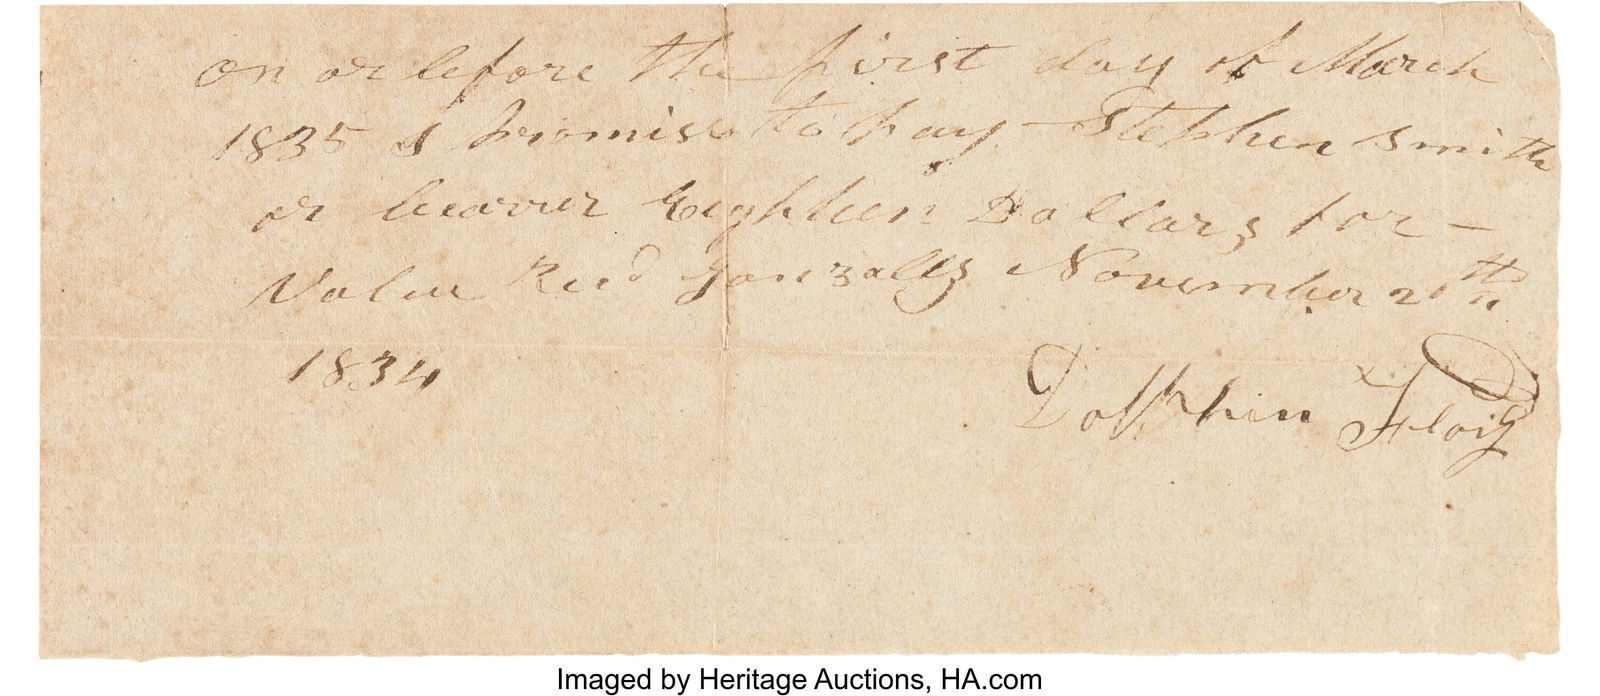 on or before the first day of March
1835 I promise to pay - Stephen Smith
or bearer Eighteen Dollars for -
Value Recd Gonzales November 20th
1834
Dolphin Floyd
Imaged by Heritage Auctions, HA.com